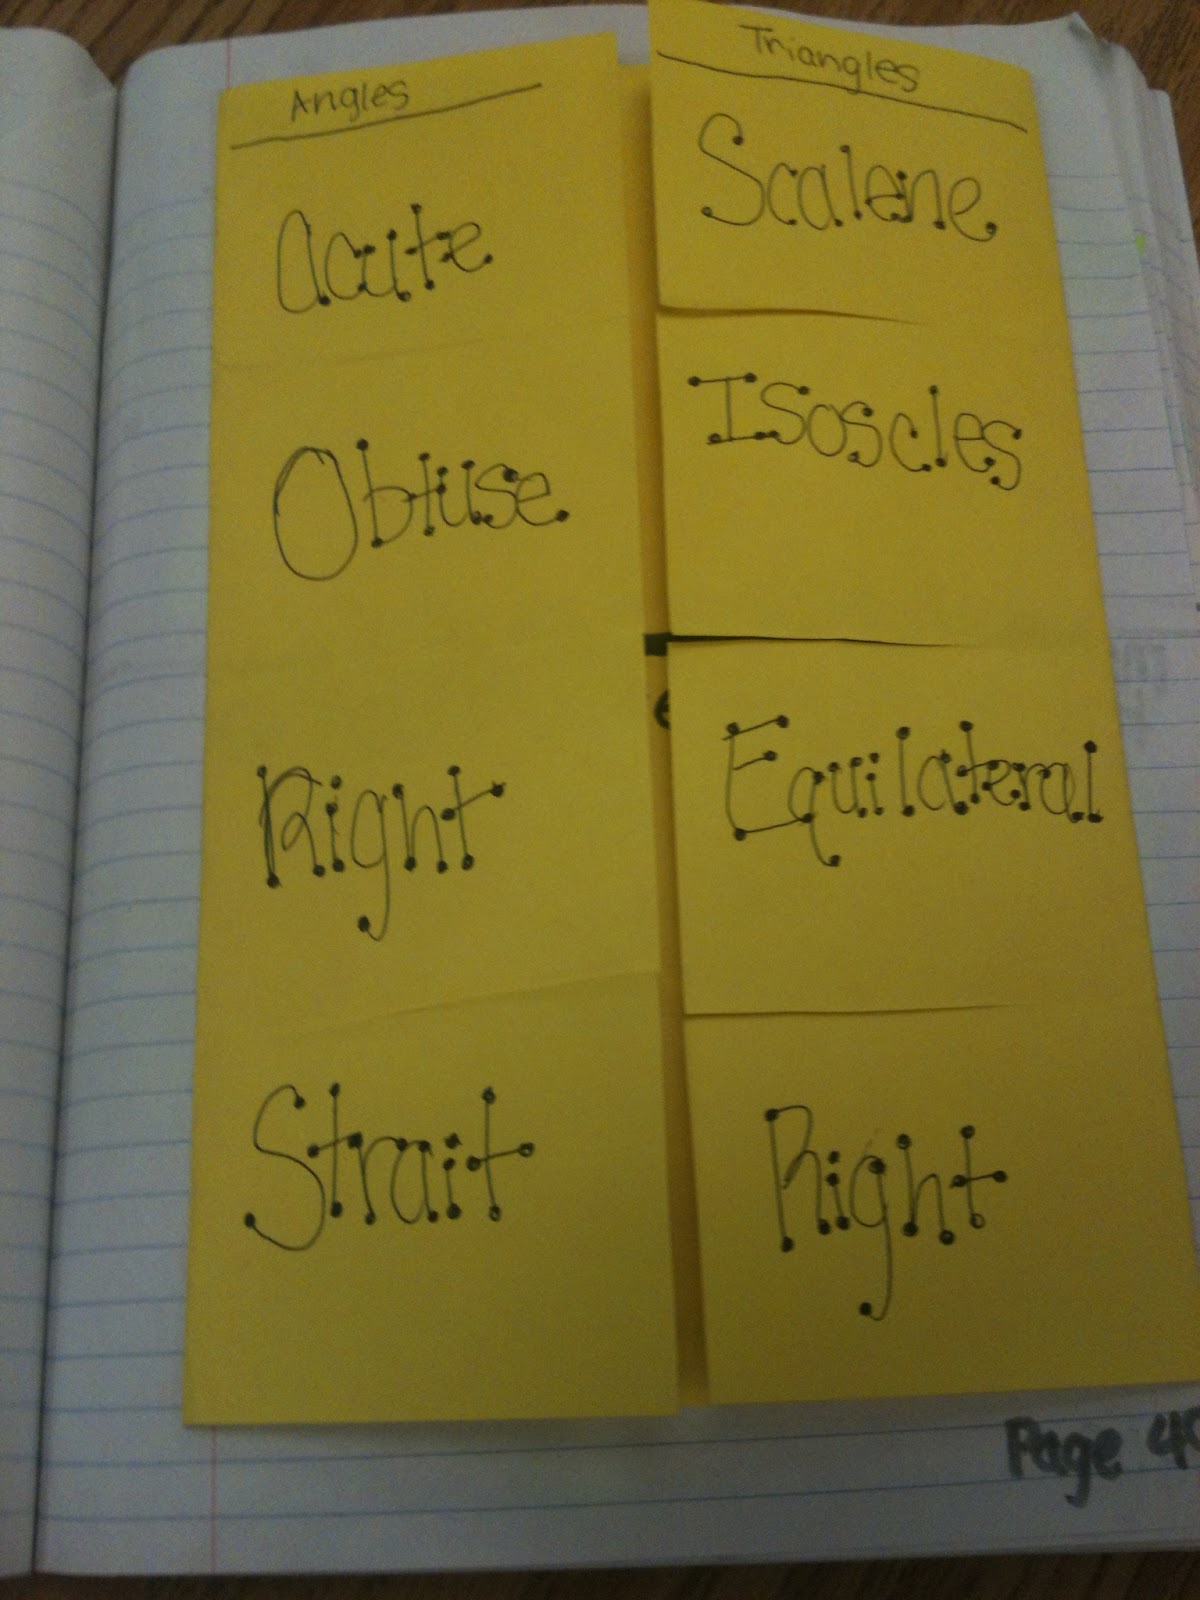 Angles
Acute
Obtuse
Right
Strait
Triangles
Scalene
Isoscles
Equilateral
Right
Page